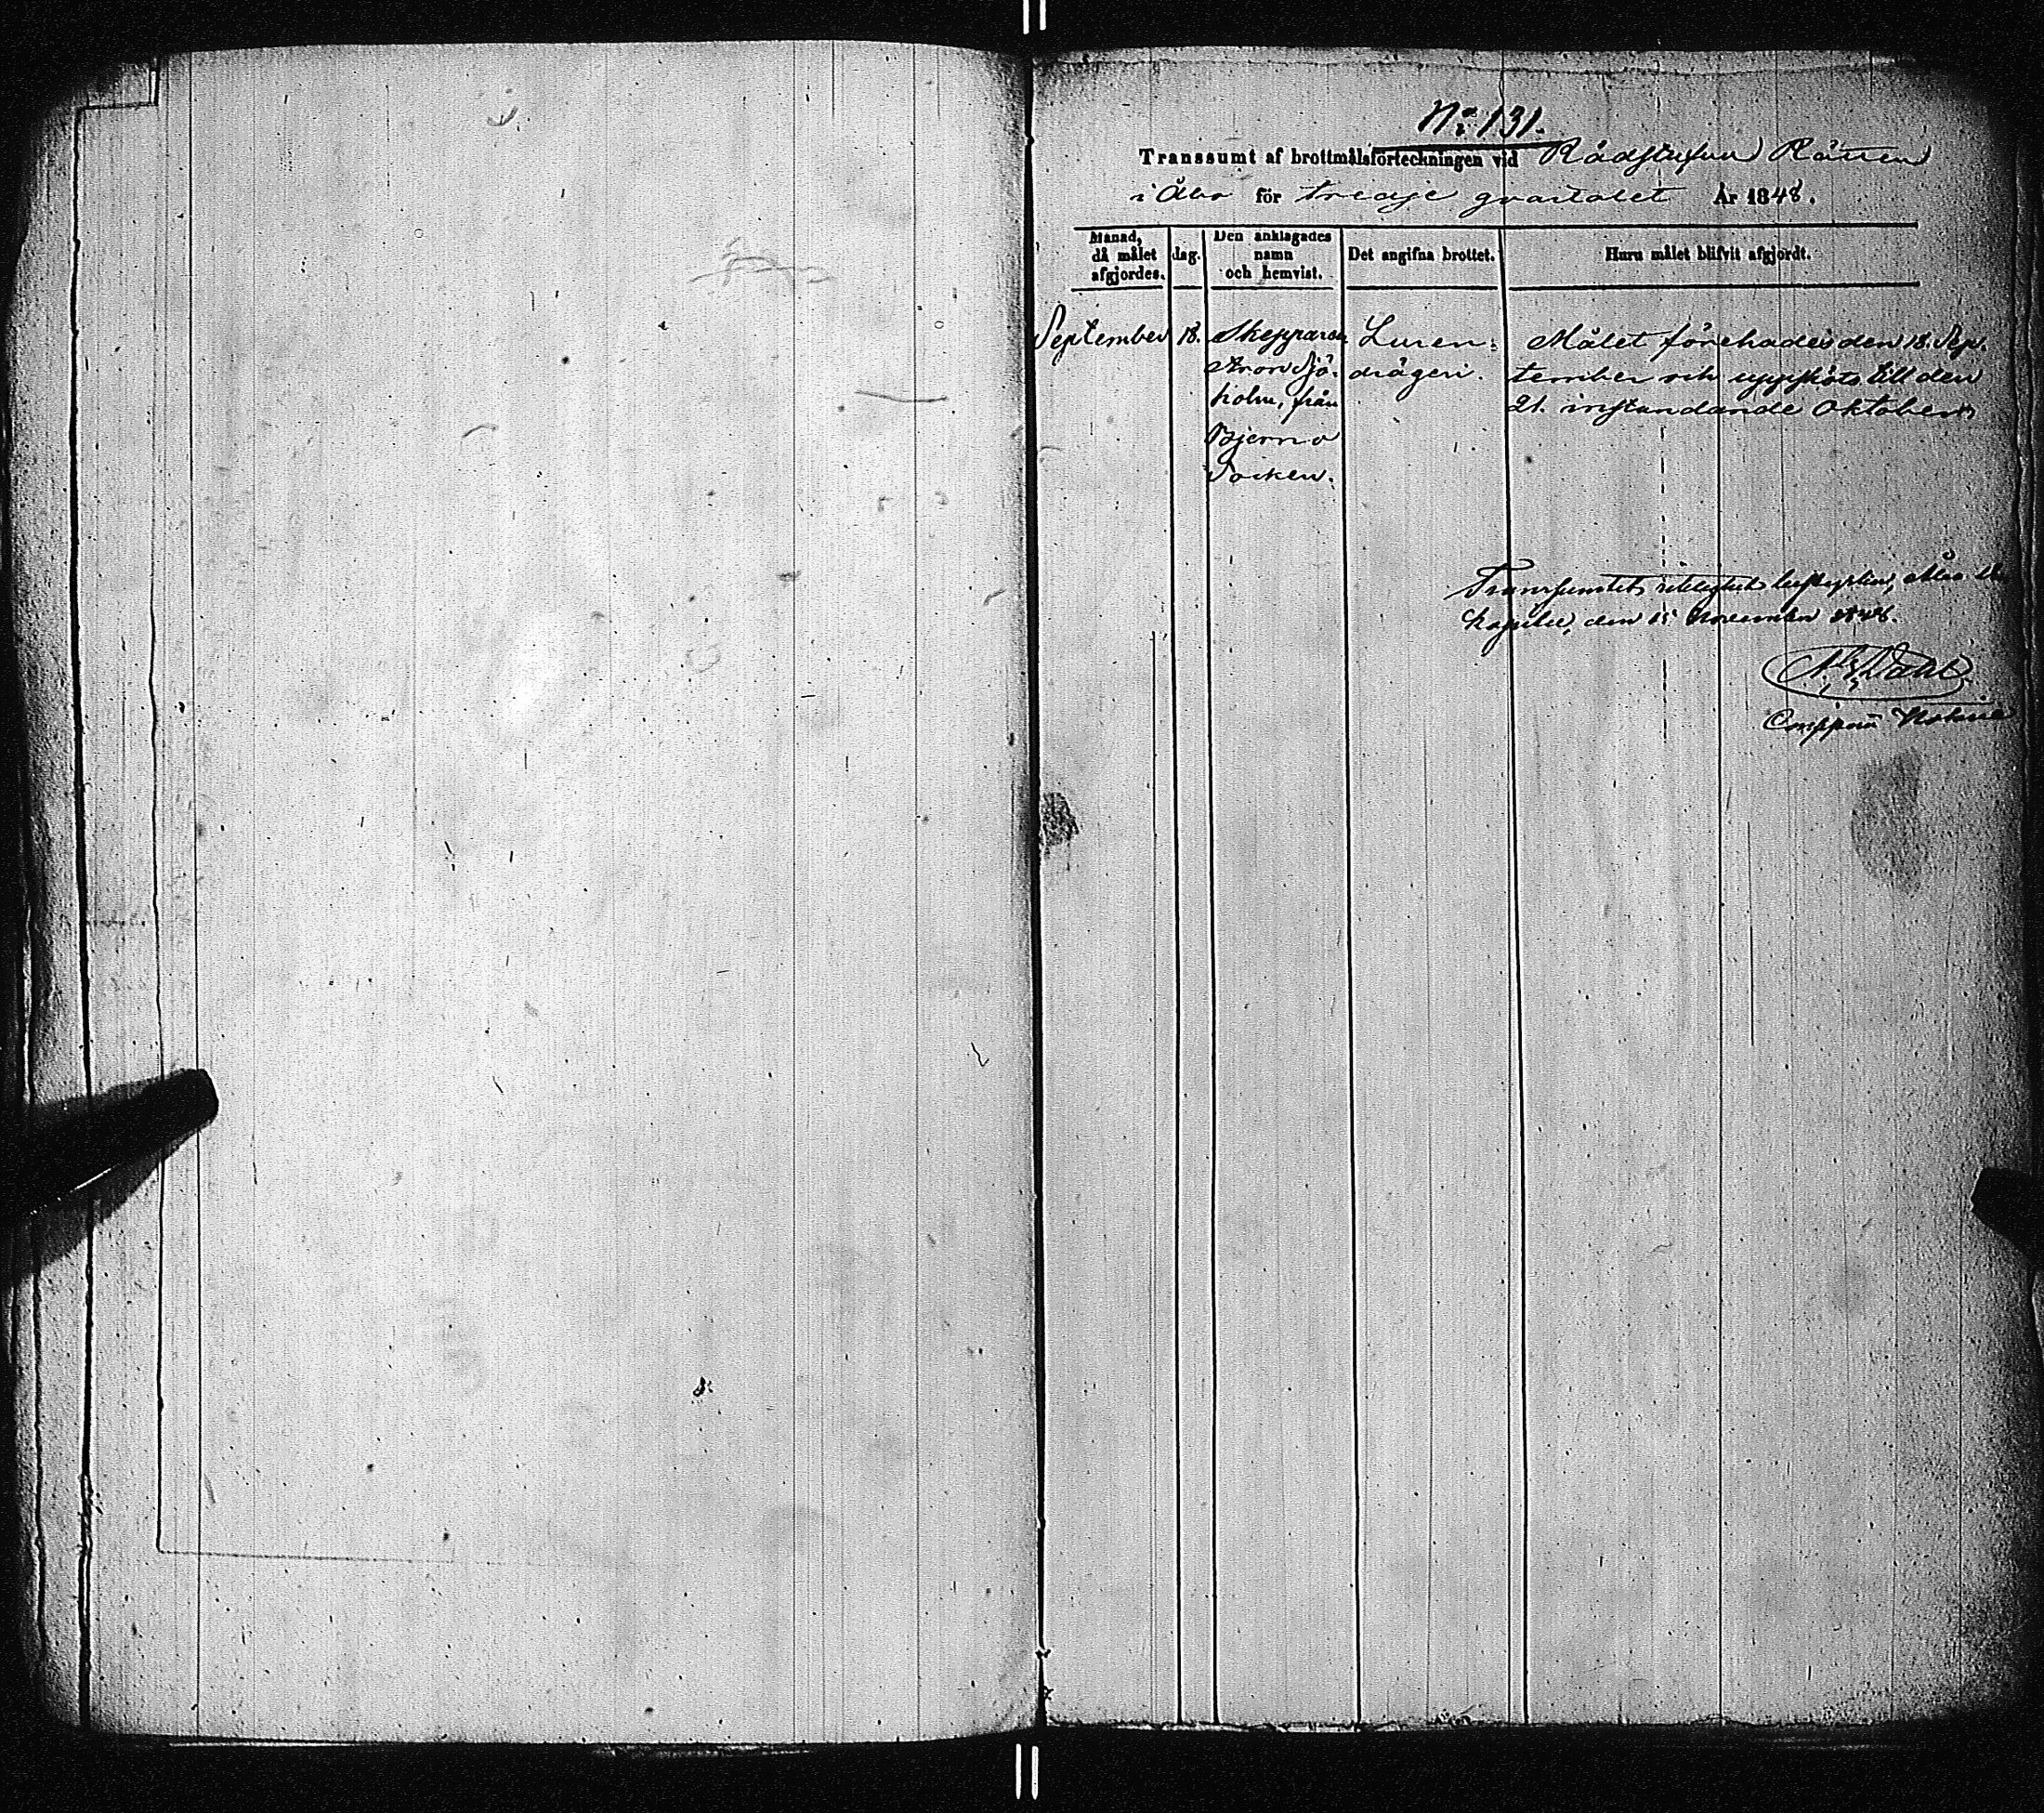 No: 131.
Transsumt af brottmålsförteckningen vid Rådstufvu Rätten
i Åbo för tredje qvartalet År 1848.
Månad, då målet afgjordes.
dag.
Den anklagades namn och hemvist.
Det angifna brottet.
Huru målet blifvit afgjordt.
September 18. Skepparen Luren- Målet förehades den 18. Sep-
Aron Sjö- drägeri. tember och uppsköts till den
holm, från 21. instundande Oktober.
Bjerno
Socken.
Transsumtets riktighet bestyrker, Åbo
den 15 November 1848.